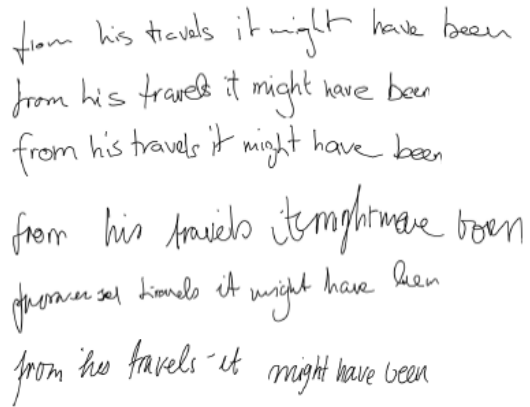 from his travels it might have been
from his travels it might have been
from his travels it might have been
from his travels it might have been
travels it might have been
from his travels-it might have been